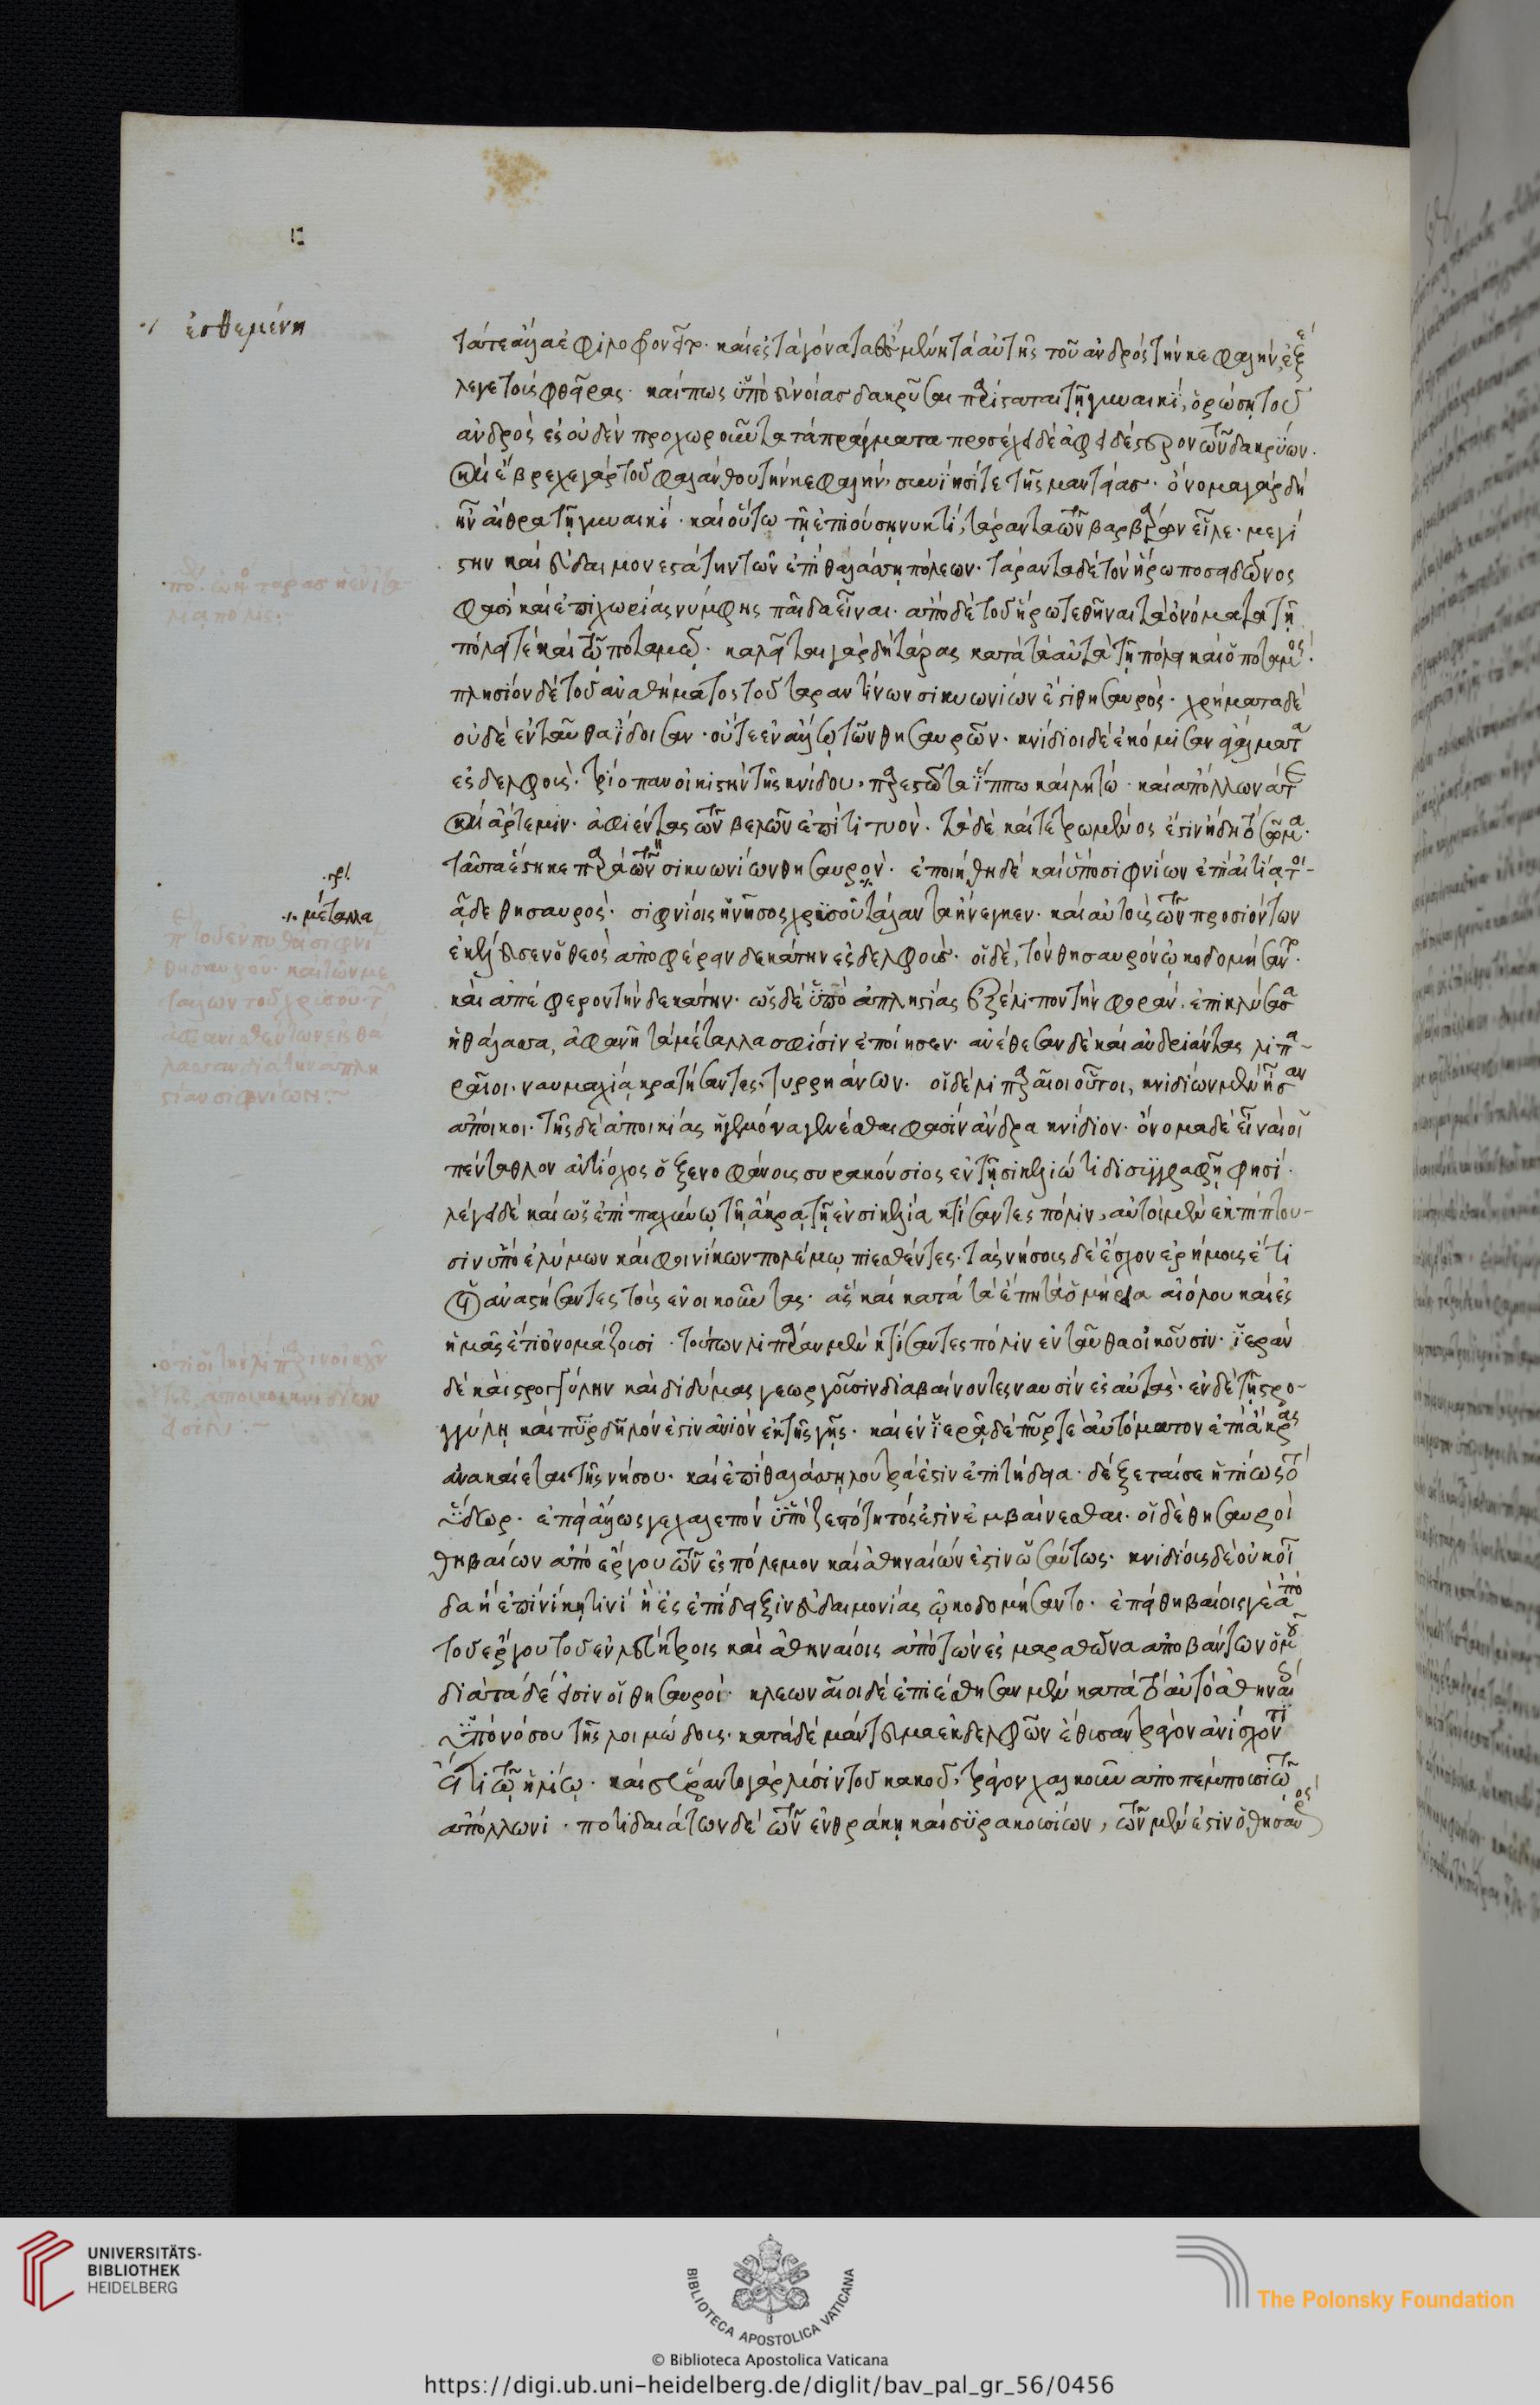 ·/ ἐσθεμένη
τά τε ἄλλα ἐφιλοφρονεῖτο· καὶ ἐς τὰ γόνατα θεμένη τὰ αὑτῆς τοῦ ἀνδρὸς τὴν κεφαλὴν, ἐξέ
λεγε τοὺς φθεῖρας· καί πως ὑπὸ εὐνοίας δακρῦσαι παρίσταται τῇ γυναικί, ὁρώσῃ τοῦ
ἀνδρὸς ἐς οὐδὲν προχωροῦντα τὰ πράγματα προσέχει δὲ ἀφειδέστερον τῶν δακρύων·
καὶ ἔβρεχε γὰρ τοῦ φαλάνθου τὴν κεφαλήν, συνίησί τε τῆς μαντείας· ὄνομα γὰρ δὴ
ἦν αἴθρα τῇ γυναικί· καὶ οὕτω τῇ ἐπιούσῃ νυκτί, τάραντα τῶν βαρβάρων εἷλε· μεγί
στην καὶ εὐδαιμονεστάτην τῶν ἐπὶ θαλάσσῃ πόλεων· τάραντα δὲ τὸν ἥρω ποσειδῶνος
φασὶ καὶ ἐπιχωρίας νύμφης παῖδα εἶναι· ἀπὸ δὲ τοῦ ἥρω τεθῆναι τὰ ὀνόματα τῇ
πόλει τὲ καὶ τῷ ποταμῷ· καλεῖται γὰρ δὴ τάρας κατὰ τὰ αὐτὰ τῇ πόλει καὶ ὁ ποταμός·
πλησίον δὲ τοῦ ἀναθήματος τοῦ ταραντίνων σικυωνίων ἐστὶ θησαυρός· χρήματα δὲ
οὐδὲ ἐνταῦθα ἴδοις ἂν· οὔτε ἐν ἄλλῳ τῶν θησαυρῶν· κνίδιοι δὲ ἐκόμισαν ἀγάλματα
ἐς δελφούς· τρίοπαν οἰκιστὴν τῆς κνίδου, παρεστῶτα ἵππῳ καὶ λητώ· καὶ ἀπόλλωνά τε
καὶ ἄρτεμιν· ἀφιέντας τῶν βελῶν ἐπὶ τιτυόν· τὰ δὲ καὶ τετρωμένος ἐστὶν ἤδη τὸ σῶμα·
ταῦτα ἕστηκε παρὰ τῶν σικυωνίων θησαυρόν· ἐποιήθη δὲ καὶ ὑπὸ σιφνίων ἐπὶ αἰτίᾳ τοι-
ᾷδε θησαυρός· σιφνίοις ἡ νῆσος χρυσοῦ τάλαντα ἤνεγκεν· καὶ αὐτοὺς τῶν προσιόντων
ἐκέλευσεν ὁ θεὸς ἀποφέρειν δεκάτην ἐς δελφούς· οἱ δὲ, τὸν θησαυρὸν ᾠκοδομήσαντο·
καὶ ἀπέφερον τὴν δεκάτην· ὡς δὲ ὑπὸ ἀπληστίας ἐξέλιπον τὴν φοράν· ἐπικλύσασα
ἡ θάλασσα, ἀφανῆ τὰ μέταλλα σφίσιν ἐποίησεν· ἀνέθεσαν δὲ καὶ ἀνδριάντας λιπα-
ραῖοι· ναυμαχίᾳ κρατήσαντες τυρρηνῶν· οἱ δὲ λιπαραῖοι οὗτοι, κνιδίων μὲν ἦσαν
ἄποικοι· τῆς δὲ ἀποικίας ἡγεμόνα γενέσθαι φασὶν ἄνδρα κνίδιον· ὄνομα δὲ εἶναί οἱ
πένταθλον ἀντίοχος ὁ ξενοφάνους συρακούσιος ἐν τῇ σικελιώτιδι συγγραφῇ φησί·
λέγει δὲ καὶ ὡς ἐπὶ παχύνῳ τῇ ἄκρᾳ τῇ ἐν σικελίᾳ κτίσαντες πόλιν, αὐτοὶ μὲν ἐκπίπτου-
σιν ὑπὸ ἐλύμων καὶ φοινίκων πολέμῳ πιεσθέντες· τὰς νήσους δὲ ἔσχον ἐρήμους ἔτι
ἢ ἀναστήσαντες τοὺς ἐνοικοῦντας· ἃς καὶ κατὰ τὰ ἔπη τὰ ὁμήρεια αἰόλου καὶ ἐς
ἡμᾶς ἔτι ὀνομάζουσι· τούτων λιπάραν μὲν κτίσαντες πόλιν ἐνταῦθα οἰκοῦσιν· ἱερὰν
δὲ καὶ στρογγύλην καὶ διδύμας γεωργοῦσιν διαβαίνοντες ναυσὶν ἐς αὐτάς· ἐν δὲ τῇ στρο-
γγύλῃ καὶ πῦρ δῆλόν ἐστιν ἀνιὸν ἐκ τῆς γῆς· καὶ ἐν ἱερᾷ δὲ πῦρ τε αὐτόματον ἐπὶ ἄκρας
ἀνακαίεται τῆς νήσου· καὶ ἐπὶ θαλάσσῃ λουτρά ἐστιν ἐπιτήδεια· δέξεταί σε ἠπίως τὸ
ὕδωρ· ἐπεὶ ἄλλως γε χαλεπὸν ὑπὸ ζεστότητός ἐστιν ἐμβαίνεσθαι· οἱ δὲ θησαυροὶ
θηβαίων ἀπὸ ἔργου τῶν ἐς πόλεμον καὶ ἀθηναίων ἐστὶν ὡσαύτως· κνιδίους δὲ οὐκ οἶ
δα ἢ ἐπὶ νίκῃ τινὶ ἢ ἐς ἐπίδειξιν εὐδαιμονίας ᾠκοδομήσαντο· ἐπεὶ θηβαίοις γε ἀπὸ
τοῦ ἔργου τοῦ ἐν λεύκτροις καὶ ἀθηναίοις ἀπὸ τῶν ἐς μαραθῶνα ἀποβάντων ὁμοῦ
δίατά δέ εἰσιν οἱ θησαυροί· κλεωναῖοι δὲ ἐπιέσθησαν μὲν κατὰ τὸ αὐτὸ ἀθηναί
ὑπὸ νόσου τῆς λοιμώδους· κατὰ δὲ μάντευμα ἐκ δελφῶν ἔθυσαν τράγον ἀνίσχοντι
ἔτι τῷ ἡλίῳ· καὶ εὕραντο γὰρ λύσιν τοῦ κακοῦ, τράγον χαλκοῦν ἀποπέμπουσι τῷ
ἀπόλλωνι· ποτιδαιάτων δὲ τῶν ἐν θρᾴκῃ καὶ συρακουσίων, τῶν μέν ἐστιν ὁ θησαυρὸς
·γρ·
·/· μέταλλα
UNIVERSITÄTS-
BIBLIOTHEK
HEIDELBERG
BIBLIOTECA APOSTOLICA VATICANA
© Biblioteca Apostolica Vaticana
The Polonsky Foundation
https://digi.ub.uni-heidelberg.de/diglit/bav_pal_gr_56/0456